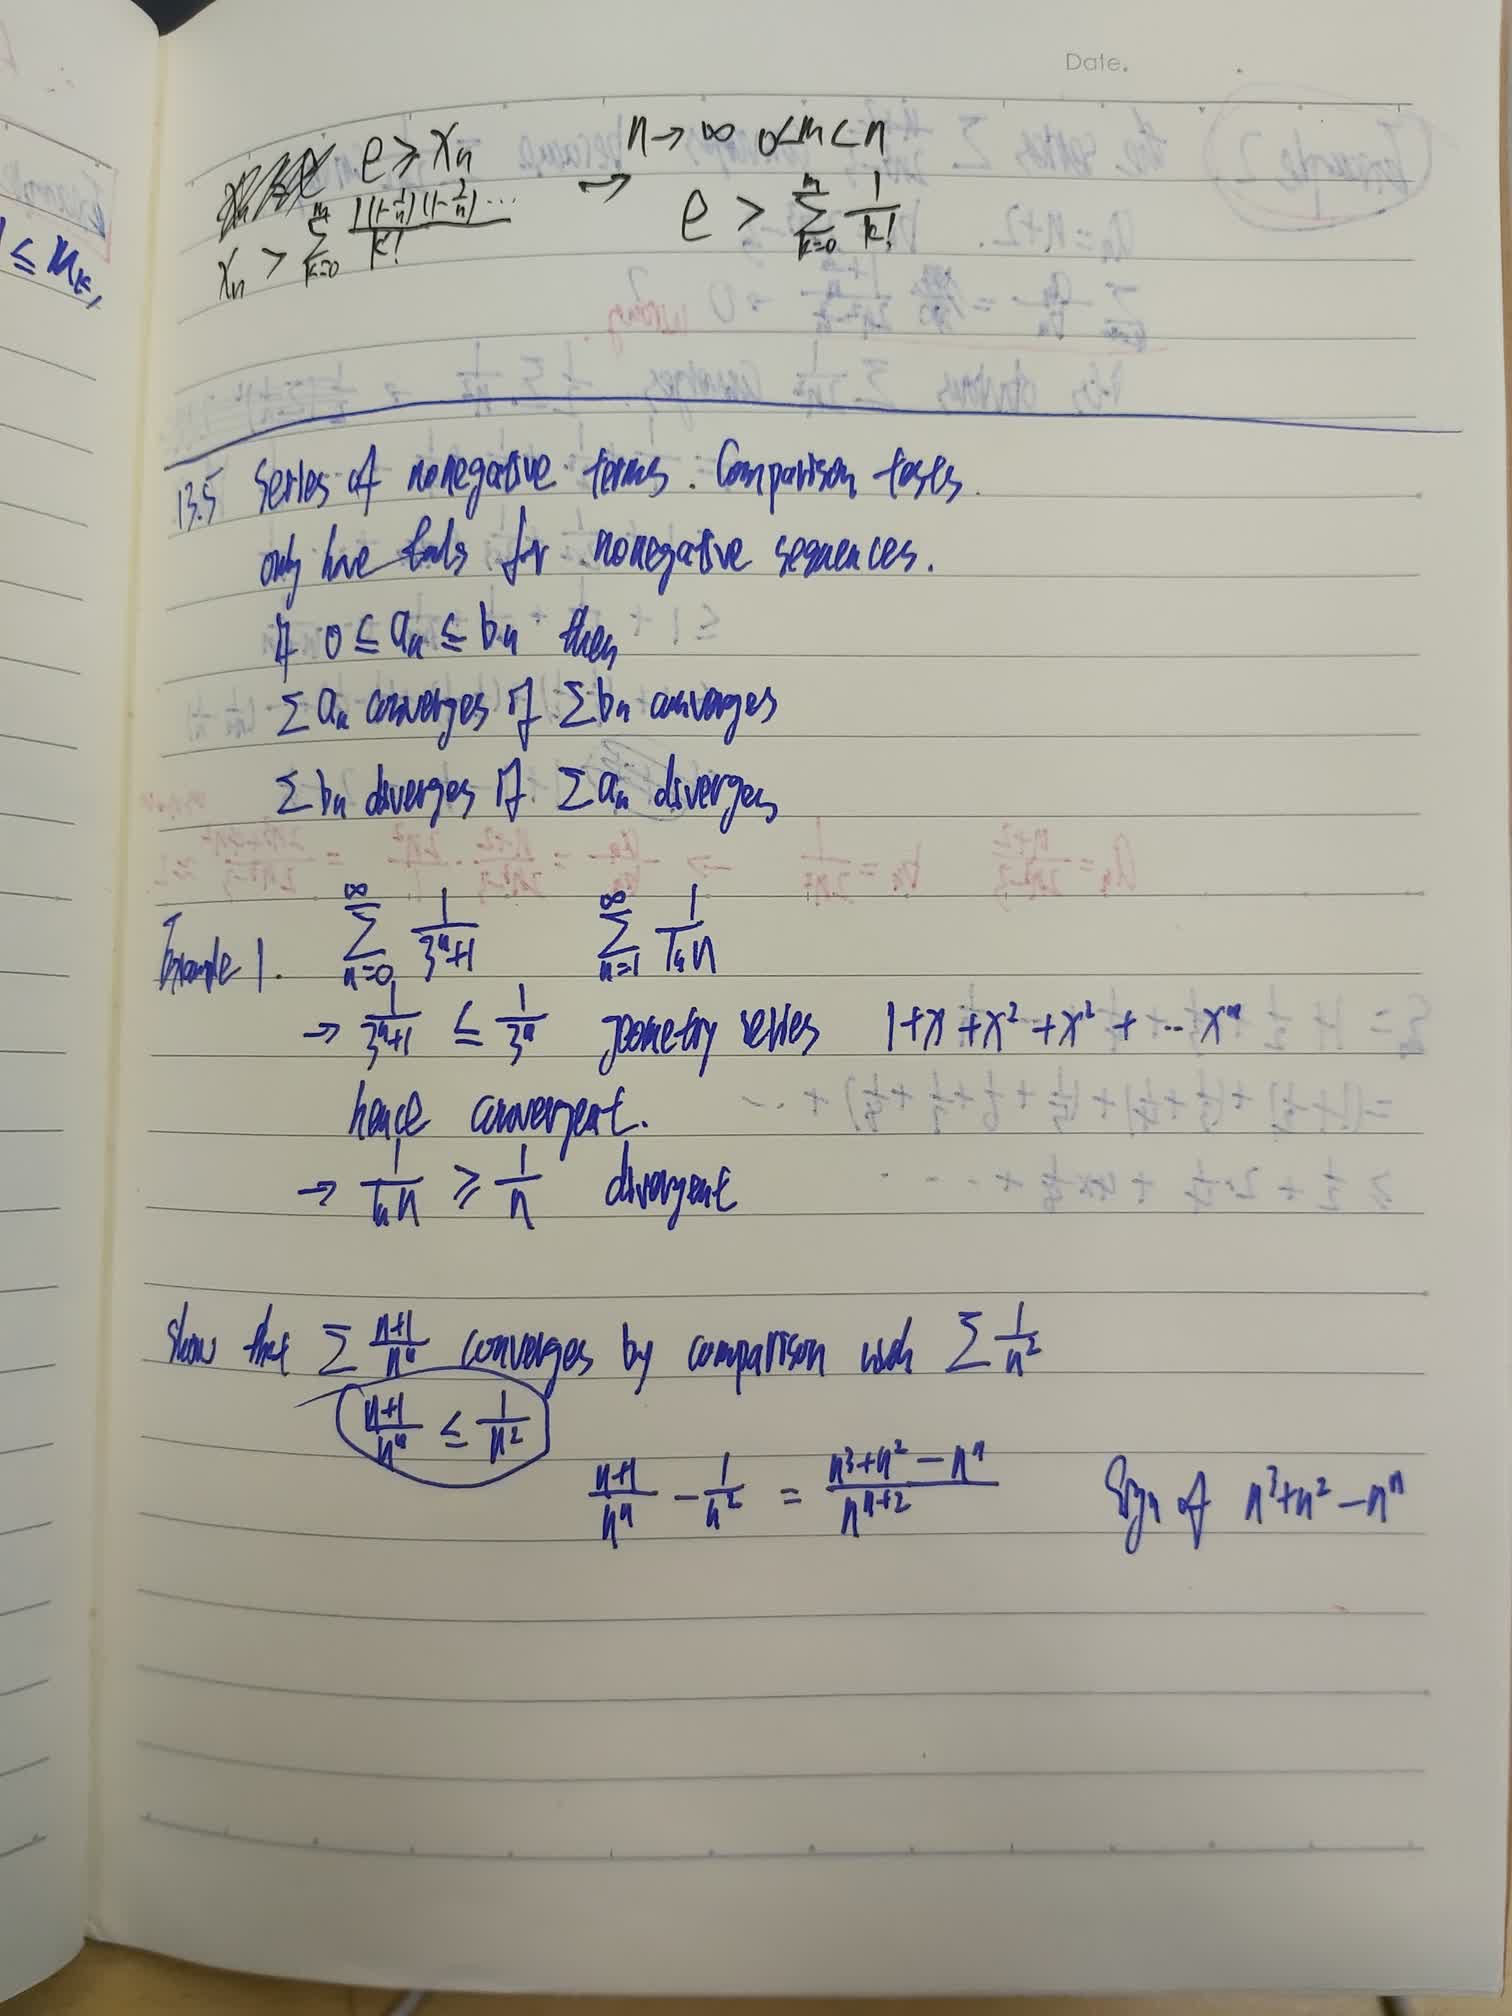 Date.
e ≥ xₙ n → ∞ 0<m<n
xₙ > ∑_{k=0}^{m} \frac{1(1-\frac{1}{n})(1-\frac{2}{n})...}{k!} → e > ∑_{k=0}^{m} \frac{1}{k!}
≤ Mₖ,
13.5 Series of nonegative terms. Comparison tests.
only have for nonegative sequences.
If 0 ≤ aₙ ≤ bₙ then
∑ aₙ converges if ∑ bₙ converges
∑ bₙ diverges if ∑ aₙ diverges
Example 1. ∑_{n=0}^{∞} \frac{1}{3ⁿ+1} ∑_{n=1}^{∞} \frac{1}{ln n}
→ \frac{1}{3ⁿ+1} ≤ \frac{1}{3ⁿ} geometry series 1+x+x²+x²+...xⁿ
hence convergent.
→ \frac{1}{ln n} ≥ \frac{1}{n} divergent
Show that ∑ \frac{n+1}{nⁿ} converges by comparison with ∑ \frac{1}{n²}
\frac{n+1}{nⁿ} ≤ \frac{1}{n²}
\frac{n+1}{nⁿ} - \frac{1}{n²} = \frac{n³+n²-nⁿ}{nⁿ⁺²} Sign of n³+n²-nⁿ